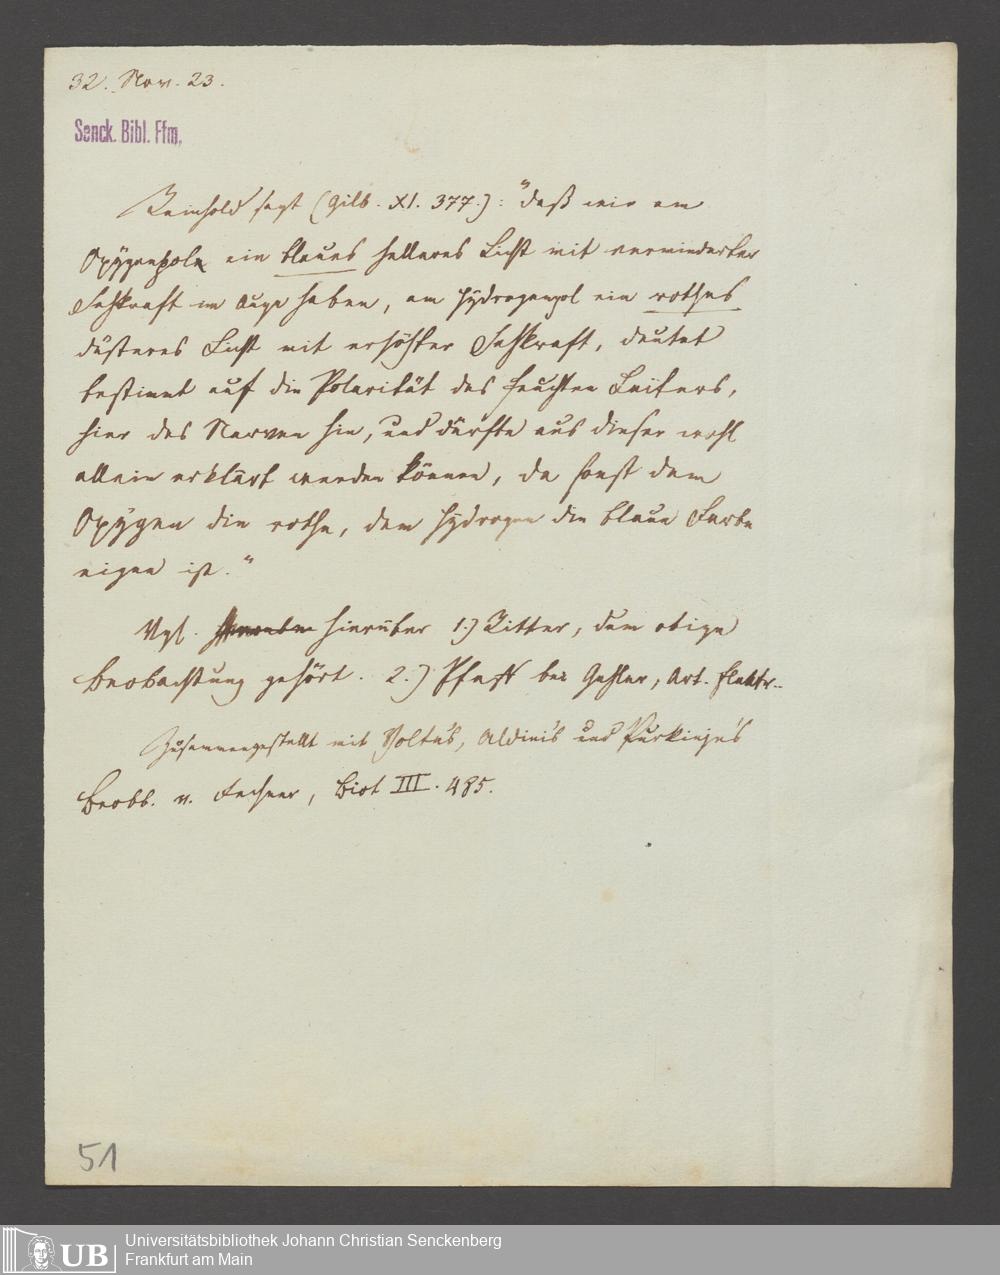 32. Nov. 23.
Senck. Bibl. Ffm.
Reinhold sagt (Gilb. XI. 377.): "daß wir am
Oxÿgenpole ein blaues helleres Licht mit verminderter
Sehkraft im Auge haben, am Hÿdrogenpol ein rothes
düsteres Licht mit erhöhter Sehkraft, deutet
bestimmt auf die Polarität des feuchten Leiters,
hier des Nerven hin, und dürfte aus dieser wohl
allein erklärt werden können, da sonst dem
Oxÿgen die rothe, dem Hÿdrogen die blaue Farbe
eigen ist."
Vgl. hierüber 1.) Ritter, dem obige
Beobachtung gehört. 2.) Pfaff bei Gehler, Art. Elektr..
Zusammengestellt mit Volta's, Aldini's und Purkinje's
Beobb. v. Fechner, Biot III. 485.
51
UB
Universitätsbibliothek Johann Christian Senckenberg
Frankfurt am Main